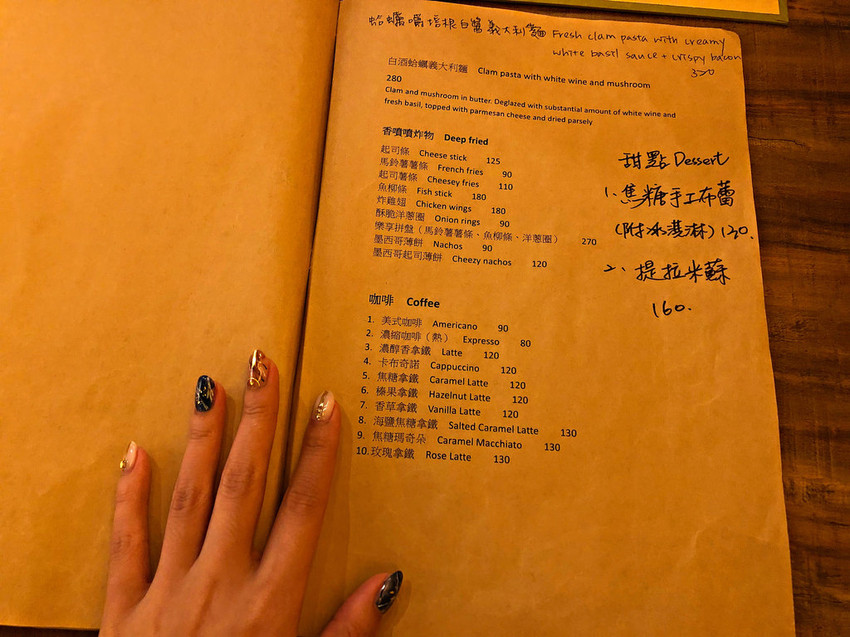 蛤蠣嚼培根白醬義大利麵 Fresh clam pasta with creamy
white basil sauce + crispy bacon
320
白酒蛤蠣義大利麵 Clam pasta with white wine and mushroom
280
Clam and mushroom in butter. Deglazed with substantial amount of white wine and
fresh basil, topped with parmesan cheese and dried parsely
香噴噴炸物 Deep fried
起司條 Cheese stick 125
馬鈴薯薯條 French fries 90
起司薯條 Cheesey fries 110
魚柳條 Fish stick 180
炸雞翅 Chicken wings 180
酥脆洋蔥圈 Onion rings 90
樂享拼盤（馬鈴薯薯條、魚柳條、洋蔥圈） 270
墨西哥薄餅 Nachos 90
墨西哥起司薄餅 Cheezy nachos 120
咖啡 Coffee
1. 美式咖啡 Americano 90
2. 濃縮咖啡（熱） Expresso 80
3. 濃醇香拿鐵 Latte 120
4. 卡布奇諾 Cappuccino 120
5. 焦糖拿鐵 Caramel Latte 120
6. 榛果拿鐵 Hazelnut Latte 120
7. 香草拿鐵 Vanilla Latte 120
8. 海鹽焦糖拿鐵 Salted Caramel Latte 130
9. 焦糖瑪奇朵 Caramel Macchiato 130
10. 玫瑰拿鐵 Rose Latte 130
甜點 Dessert
1、焦糖手工布蕾
(附冰淇淋) 130.
2、提拉米蘇
160.